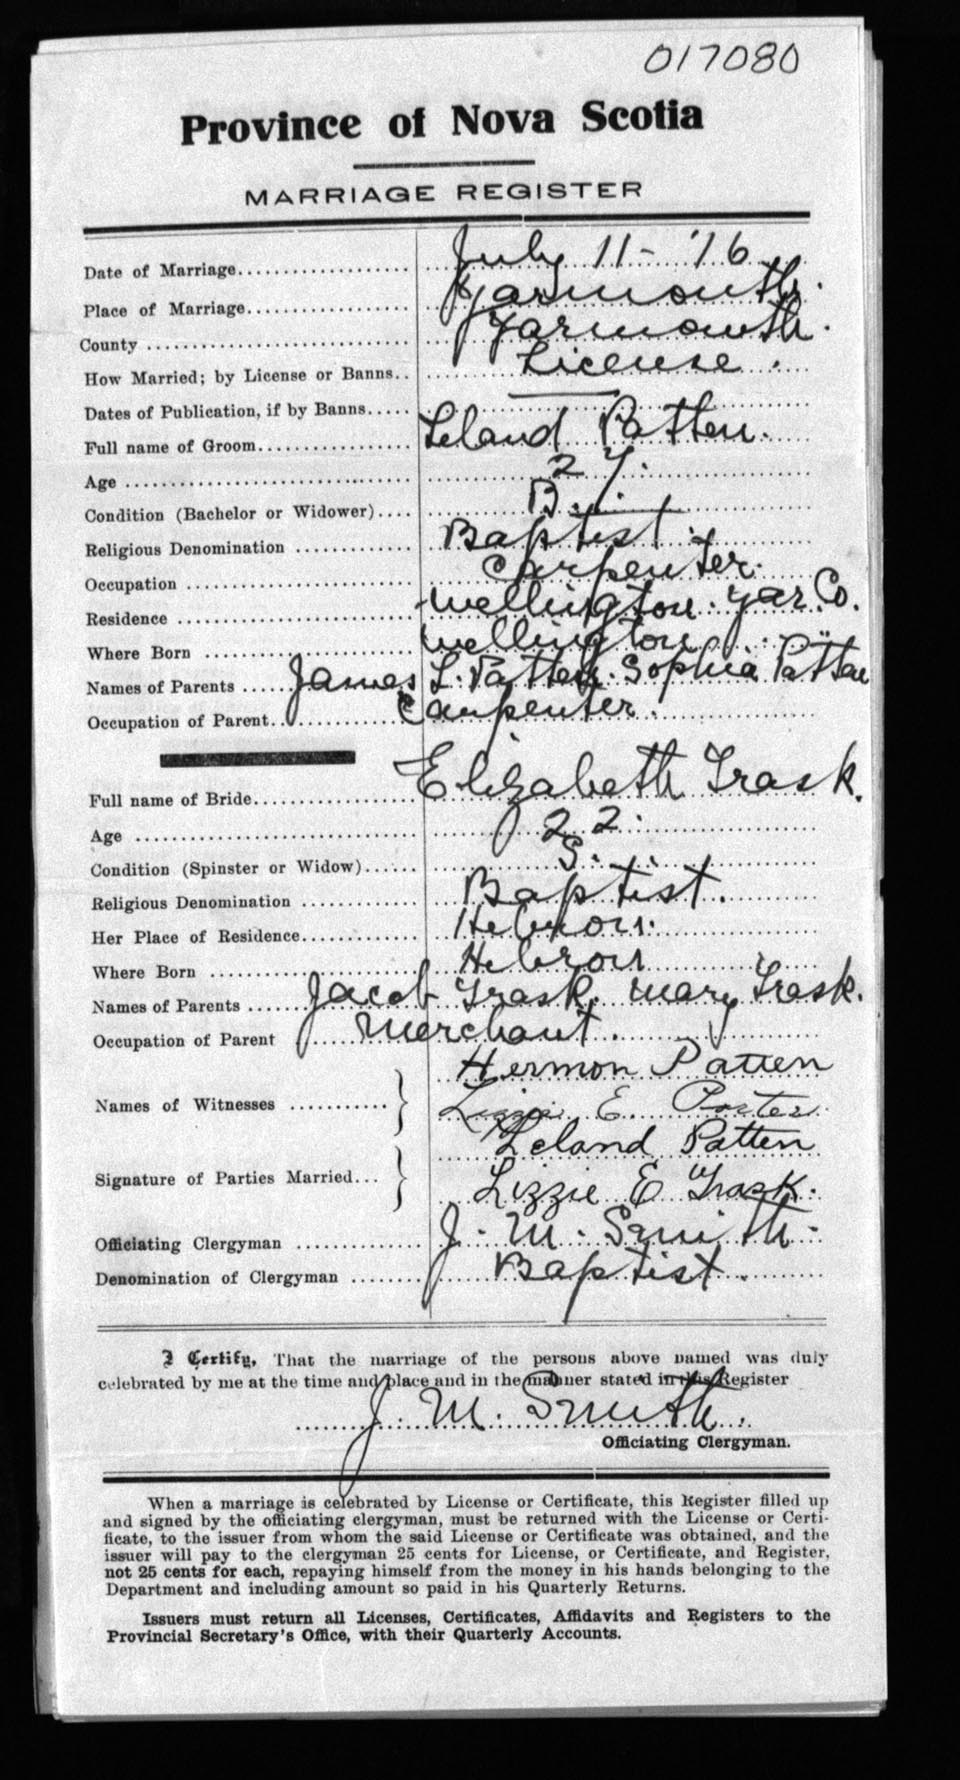 017080
Province of Nova Scotia
MARRIAGE REGISTER
Date of Marriage July 11 - '16
Place of Marriage Yarmouth.
County Yarmouth.
How Married; by License or Banns License.
Dates of Publication, if by Banns —
Full name of Groom Leland Patten.
Age 27.
Condition (Bachelor or Widower) B.
Religious Denomination Baptist.
Occupation Carpenter.
Residence Wellington. Yar. Co.
Where Born Wellington.
Names of Parents James L. Patten. Sophia Patten
Occupation of Parent Carpenter.
Full name of Bride Elizabeth Trask.
Age 22.
Condition (Spinster or Widow) S.
Religious Denomination Baptist.
Her Place of Residence Hebron.
Where Born Hebron
Names of Parents Jacob Trask. Mary Trask.
Occupation of Parent Merchant.
Hermon Patten
Names of Witnesses } Lizzie E. Porter
Leland Patten
Signature of Parties Married } Lizzie E Trask.
Officiating Clergyman J. M. Smith.
Denomination of Clergyman Baptist.
I Certify, That the marriage of the persons above named was duly
celebrated by me at the time and place and in the manner stated in this Register
J. M. Smith.
Officiating Clergyman.
When a marriage is celebrated by License or Certificate, this Register filled up
and signed by the officiating clergyman, must be returned with the License or Certi-
ficate, to the issuer from whom the said License or Certificate was obtained, and the
issuer will pay to the clergyman 25 cents for License, or Certificate, and Register,
not 25 cents for each, repaying himself from the money in his hands belonging to the
Department and including amount so paid in his Quarterly Returns.
Issuers must return all Licenses, Certificates, Affidavits and Registers to the
Provincial Secretary's Office, with their Quarterly Accounts.